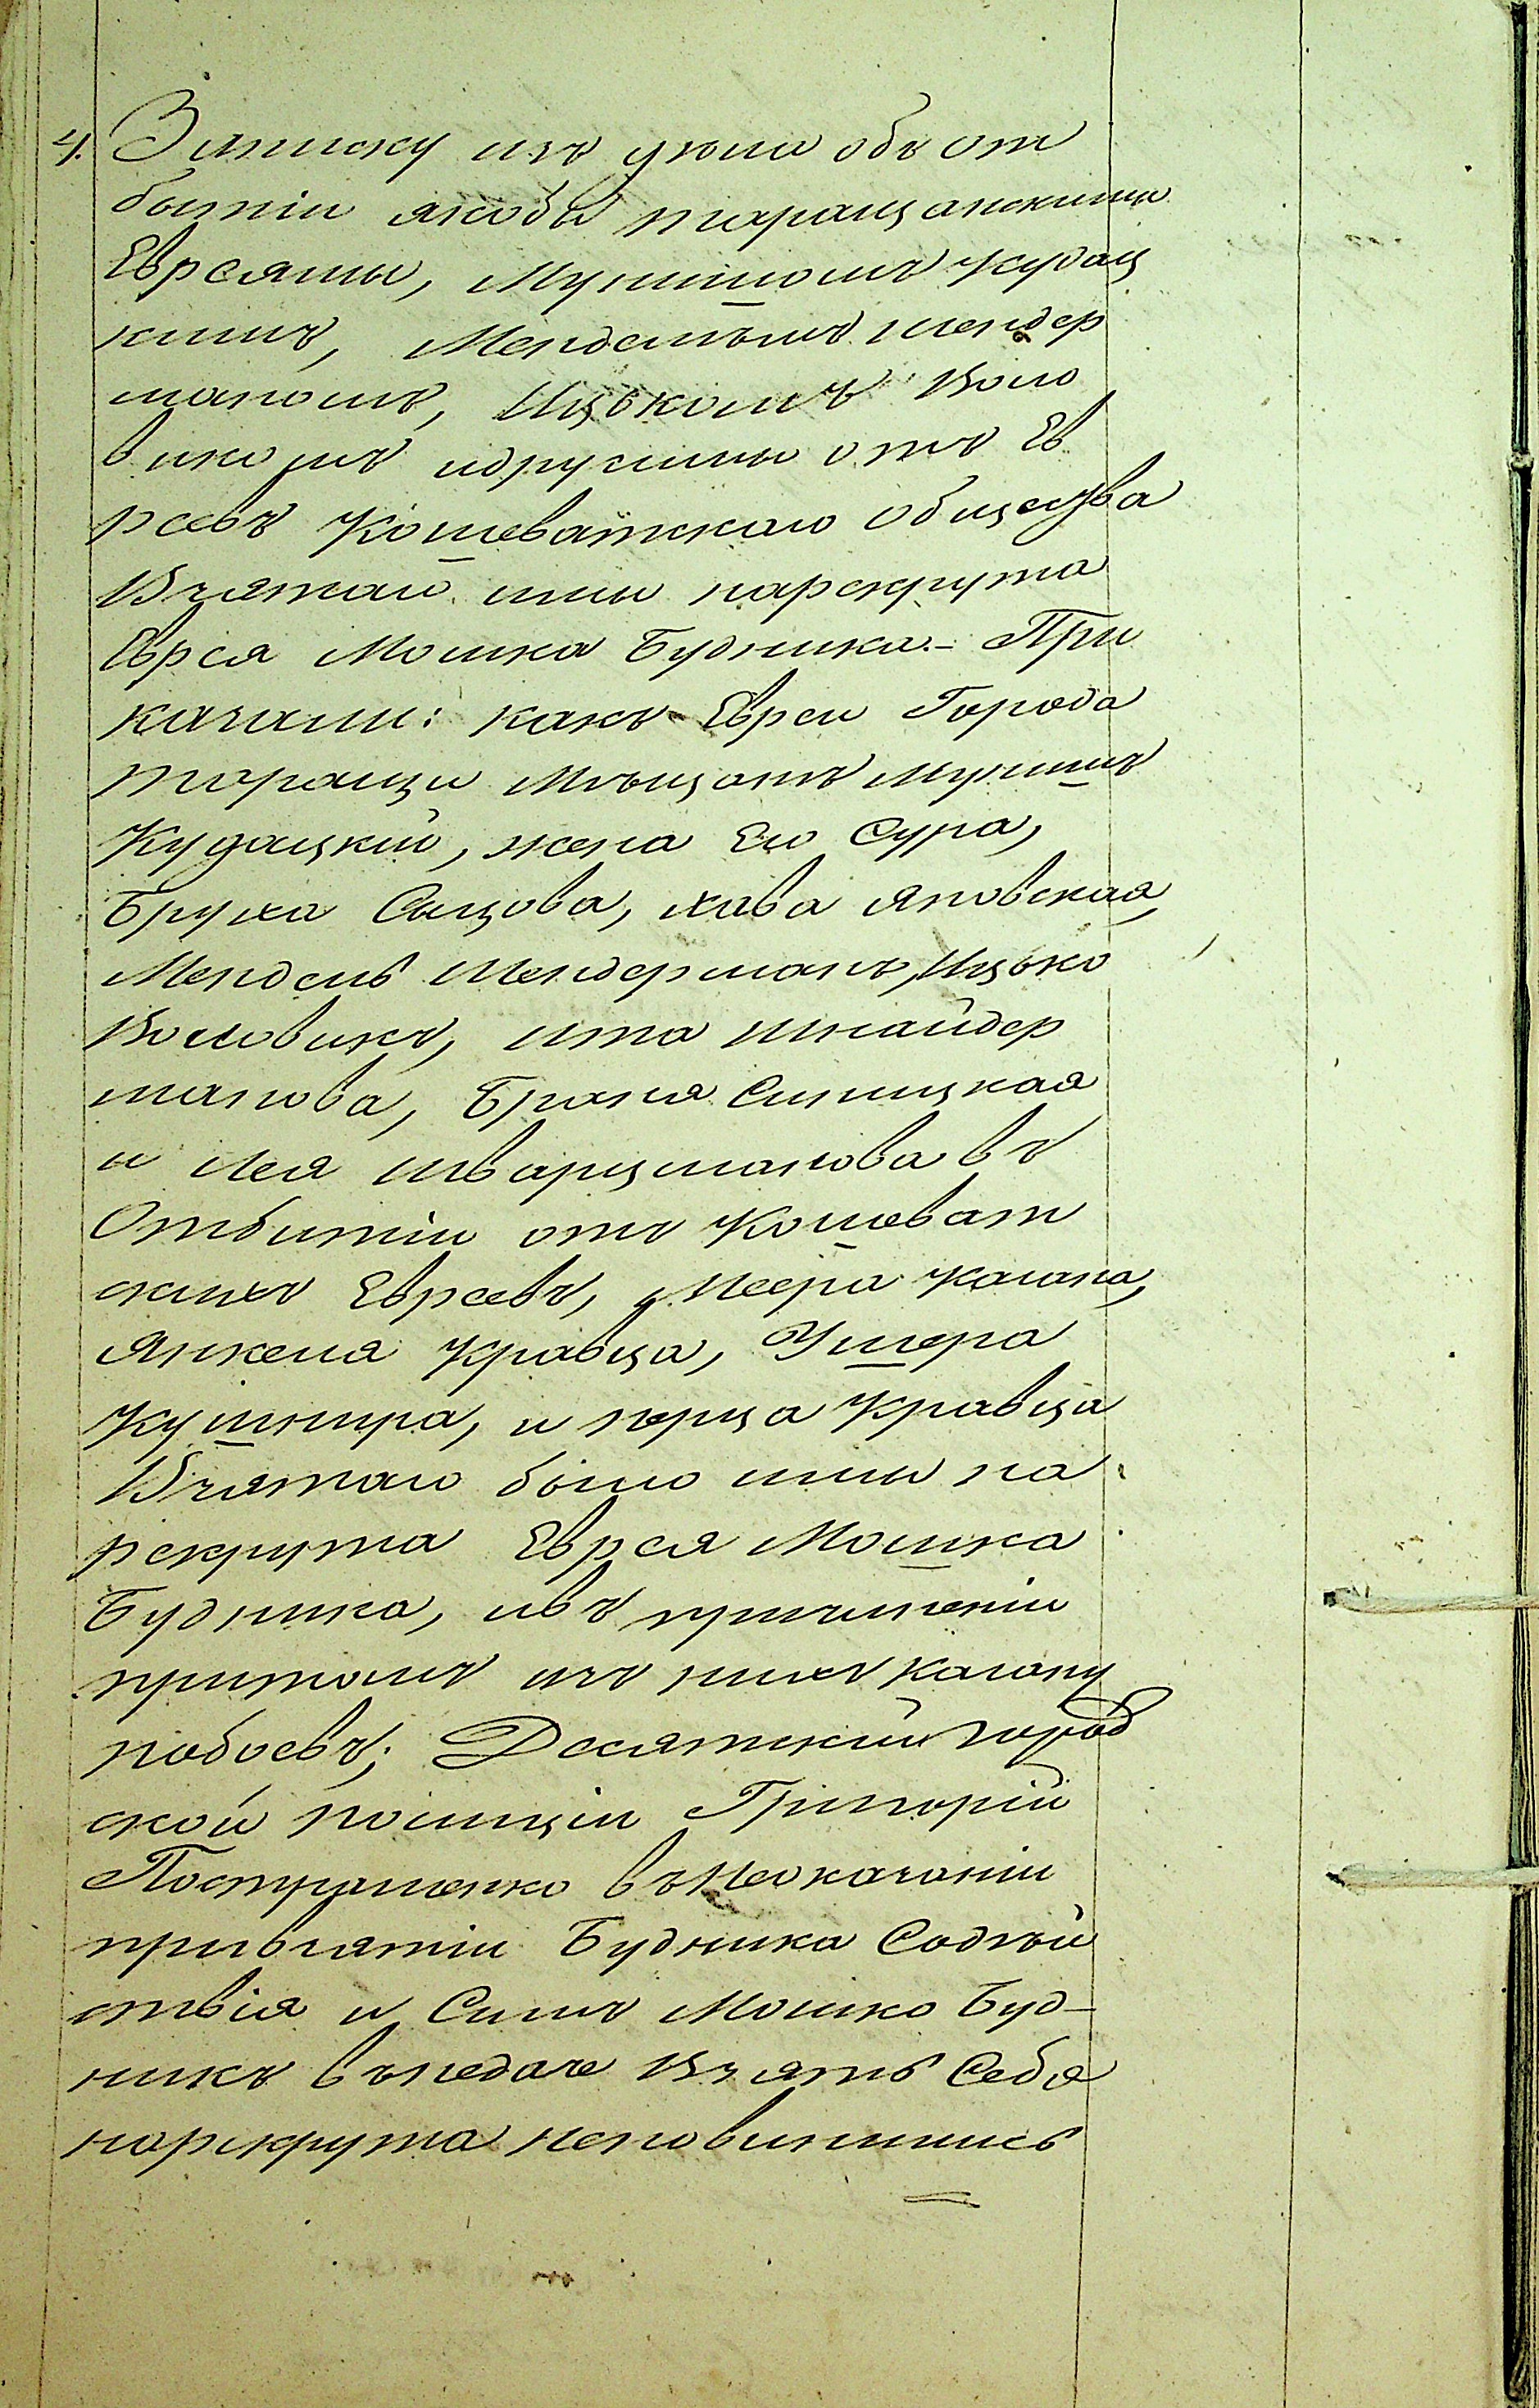 4. Записку изъ дѣла объ от
битіи якобы таращанскими
Евреями, Мунишомъ Кудац
кимъ, Менделемъ Мендер
маномъ, Ицькомъ Воло
викомъ идругими отъ Ев
реевъ Кошеватскаго общества
Взятаго ими нарекрута
Еврея Мошка Будника.- При
казали: какъ Евреи Города
таращи Мѣщанъ Мунишъ
Кудацкій, жена Его Сура,
Бруха Сицова, хава яновская,
Мендель Мендерманъ, Ицько
Воловикъ, ита шнайдер
манова, Браня Синицкая
и лея шварцманова въ
Отбитіи отъ Кошеват
скихъ Евреевъ, Меера Кагана,
Янкеля Кравца, Ушера
Кушнира, и герца Кравца
Взятаго било ими на
рекрута Еврея Мошка
Будника, ивъ причиненіи
притомъ изъ нихъ кагану
побоевъ; Десятскій город
ской полиціи Григорій
Пострященко въ Неоказаніи
привзятіи Будника Содѣй
ствія и Самъ Мошко Буд-
никъ въ недаче Взять Себя
нарекрута неповинились